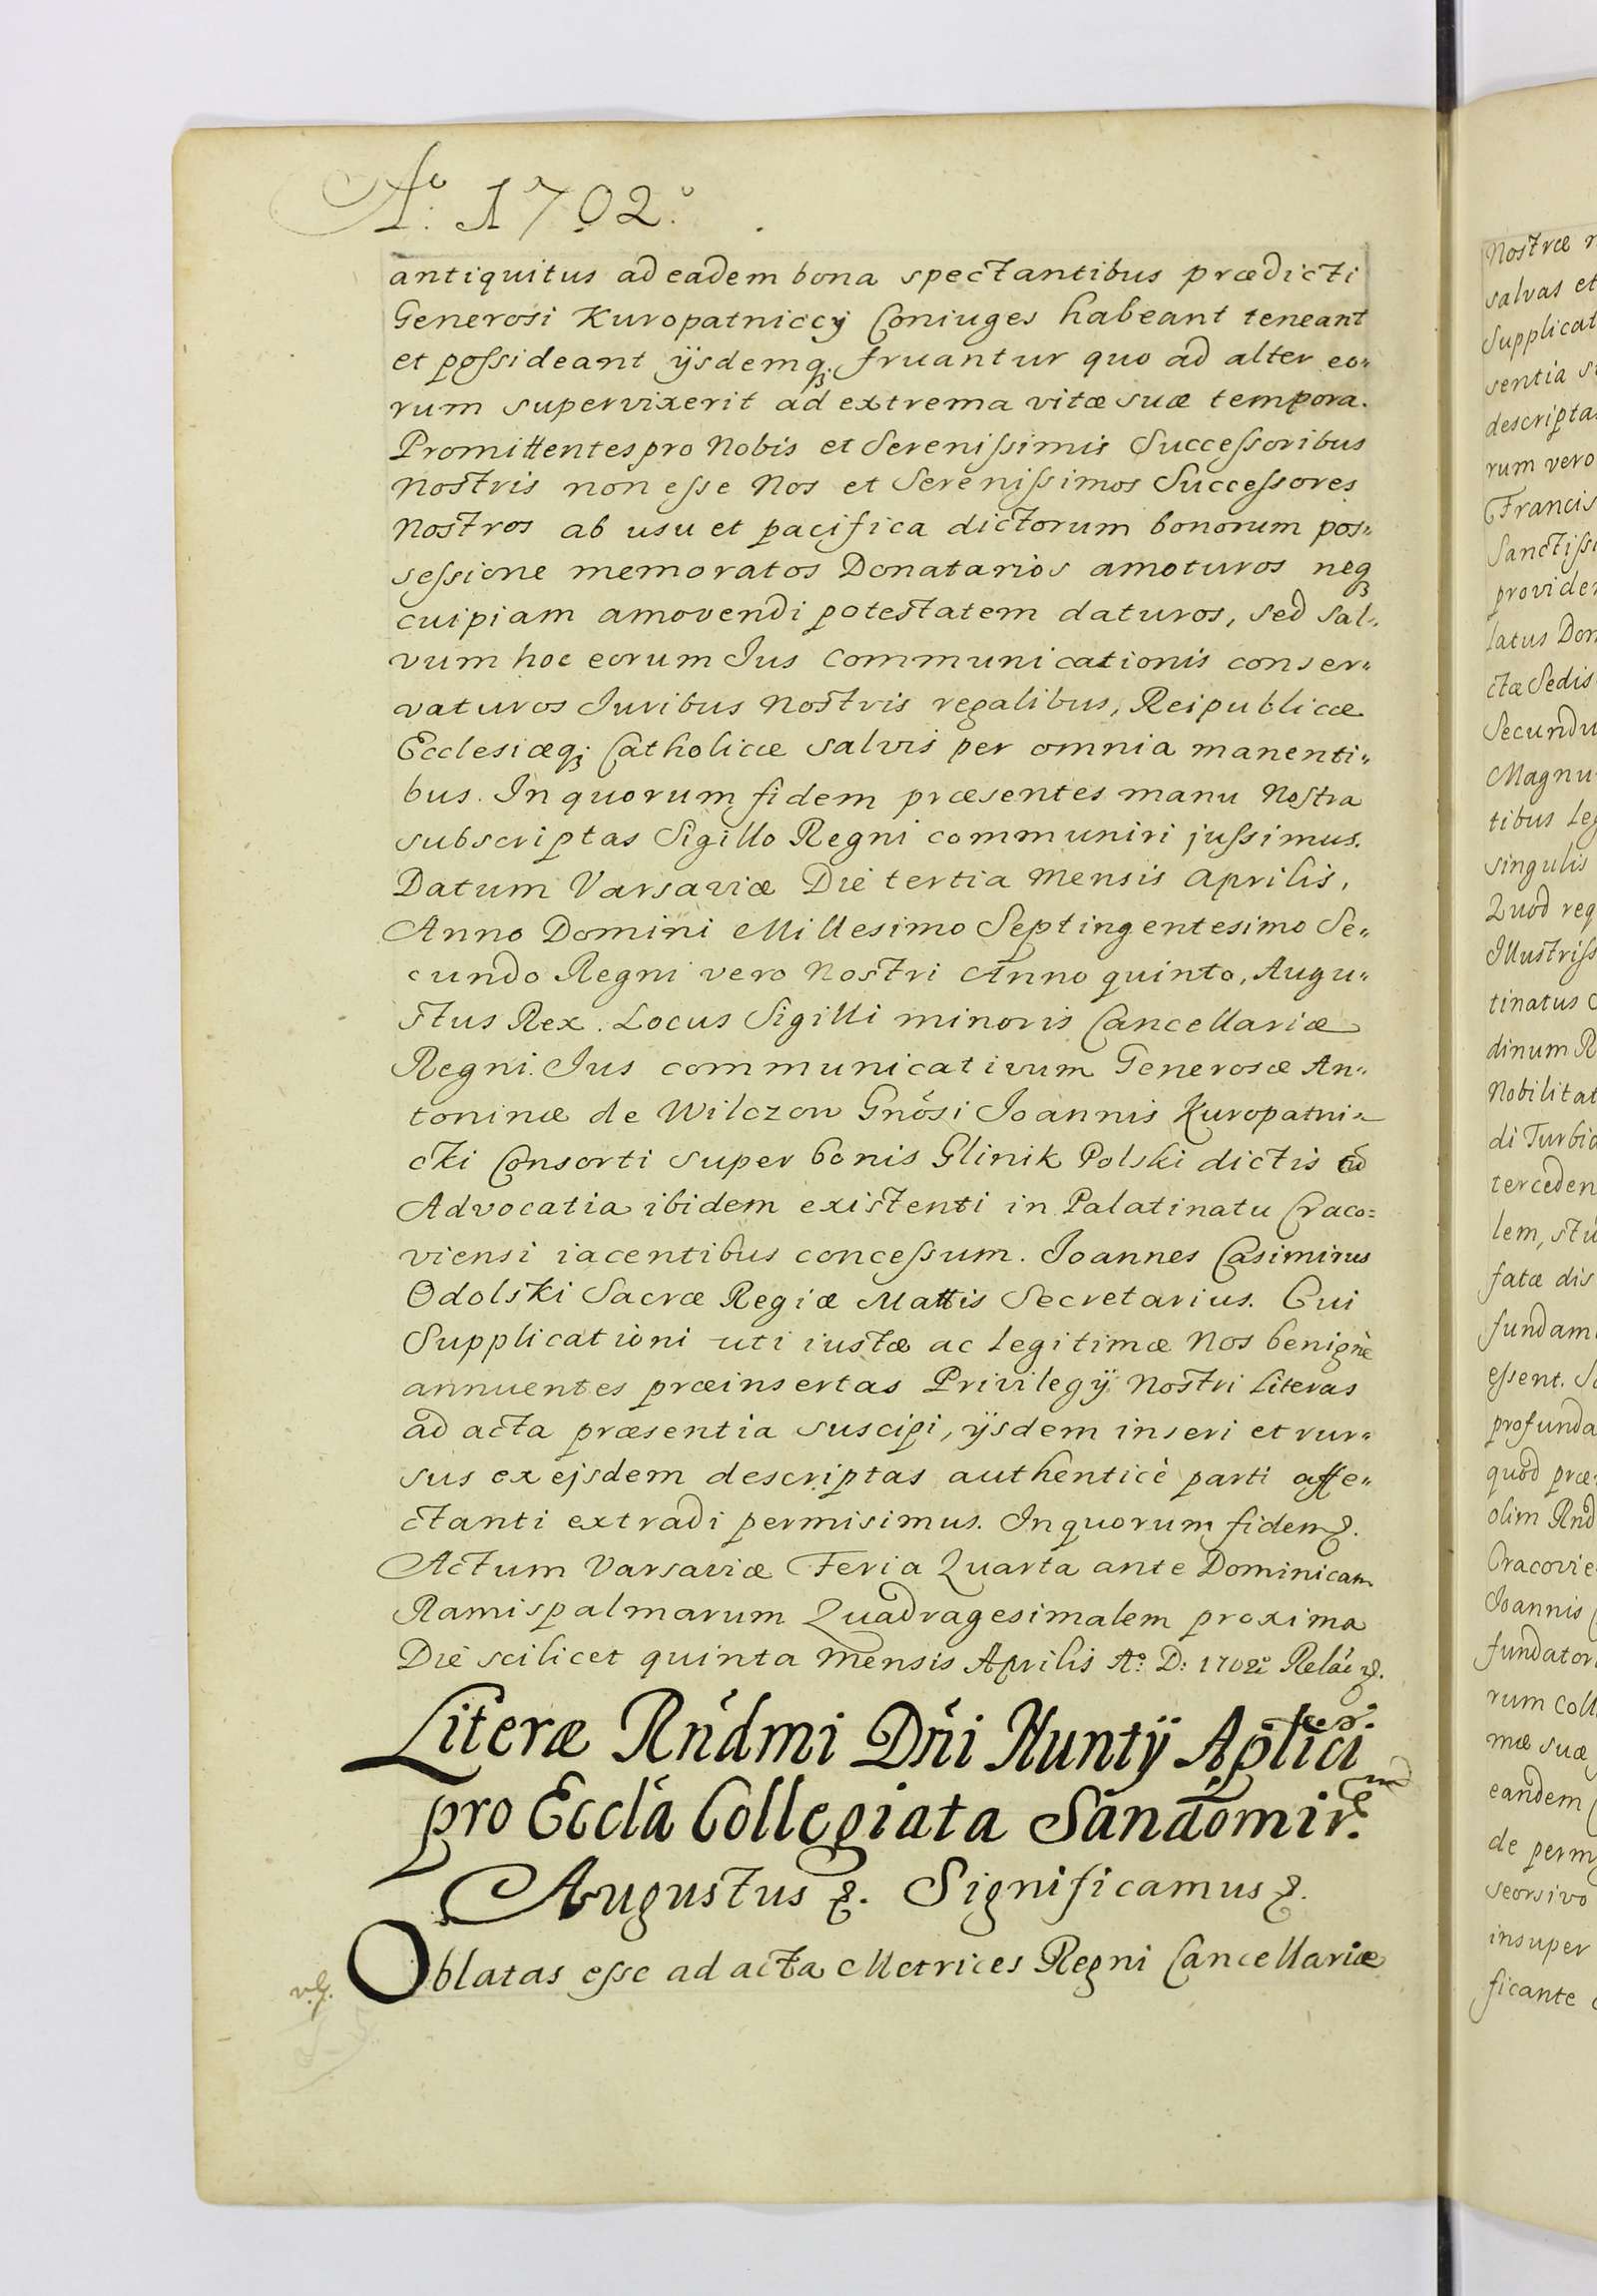 Aº. 1702º.
antiquitus ad eadem bona spectantibus prædicti
Generosi Kuropatniccÿ Coniuges habeant teneant
et poſsideant ÿsdemq; fruantur quo ad alter eo„
rum supervixerit ad extrema vitæ suæ tempora.
Promittentes pro Nobis et Sereniſsimis Succeſsoribus
Nostris non eſse Nos et Sereniſsimos Succeſsores
Nostros ab usu et pacifica dictorum bonorum pos„
seſsione memoratos Donatarios amoturos neq;
cuipiam amovendi potestatem daturos, sed sal„
vum hoc eorum Ius communicationis conser„
vaturos Iuribus Nostris regalibus, Reipublicæ
Ecclesiæq; Catholicæ salvis per omnia manenti„
bus. In quorum fidem præsentes manu Nostra
subscriptas Sigillo Regni communiri juſsimus.
Datum Varsaviæ Die tertia Mensis Aprilis,
Anno Domini Millesimo Septingentesimo Se„
cundo Regni vero Nostri Anno quinto, Augu„
stus Rex. Locus Sigilli minoris Cancellariæ
Regni. Ius communicativum Generosæ An„
toninæ de Wilczow Gnósi Ioannis Kuropatni„
cki Consorti super bonis Glinik Polski dictis cũ
Advocatia ibidem existenti in Palatinatu Craco=
viensi iacentibus conceſsum. Ioannes Casimirus
Odolski Sacræ Regiæ Mattis Secretarius. Cui
Supplicationi uti iustæ ac legitimæ Nos benignè
annuentes præinsertas Privilegÿ Nostri Literas
ad acta præsentia suscipi, ÿsdem inseri et rur„
sus ex ejsdem descriptas authenticè parti affe„
ctanti extradi permisimus. In quorum fidem &.
Actum Varsaviæ Feria Quarta ante Dominicam
Ramispalmarum Quadragesimalem proxima
Die scilicet quinta Mensis Aprilis Aº: D: 1702º Reláo &.
Literæ Rńdmi Dńi Nuntÿ Aplici
pro Ecclá Collegiata Sandomir.
Augustus &. Significamus &.
Oblatas eſse ad acta Metrices Regni Cancellariæ
Nostræ
salvas et
Supplicat
sentia
descripta
rum vero
Francis
Sanctiſsi
provider
latus Don
ctæ Sedis
Secundu
Magnu
tibus Leg
singulis
Quod req
Illustriſs
tinatus
dinum R
Nobilitat
di Turbi
terceden
lem, stu
fatæ dis
fundam
eſsent.
profunda
quod præ
olim Rnd
Cracovie
Ioannis
fundator
rum Coll
mæ suæ
eandem
de perm
seorsivo
insuper
ficante